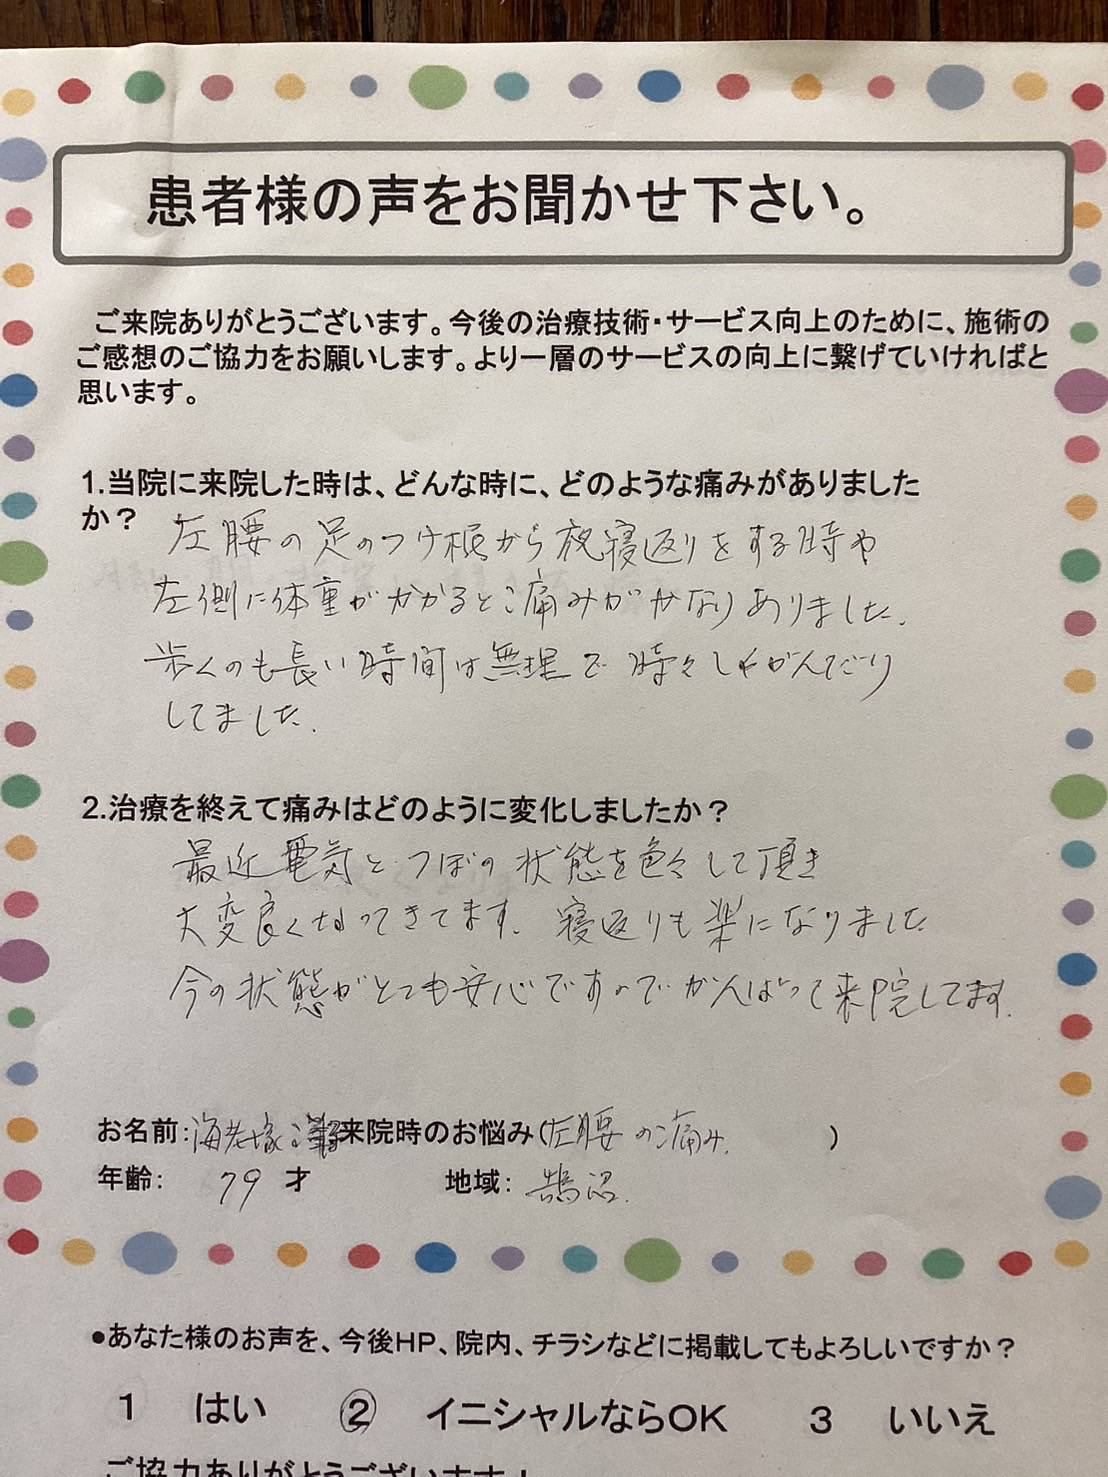 患者様の声をお聞かせ下さい。
ご来院ありがとうございます。今後の治療技術・サービス向上のために、施術の
ご感想のご協力をお願いします。より一層のサービスの向上に繋げていければと
思います。
1.当院に来院した時は、どんな時に、どのような痛みがありました
か？
左腰の足のつけ根から夜寝返りをする時や
左側に体重がかかると痛みがかなりありました。
歩くのも長い時間は無理で時々しゃがんだり
してました。
2.治療を終えて痛みはどのように変化しましたか？
最近電気とつぼの状態を色々して頂き
大変良くなってきてます。寝返りも楽になりました
今の状態がとても安心ですのでがんばって来院してます。
お名前：海老塚 来院時のお悩み（左腰の痛み. ）
年齢： 79 才 地域： 鵠沼.
●あなた様のお声を、今後HP、院内、チラシなどに掲載してもよろしいですか？
1 はい ② イニシャルならOK 3 いいえ
ご協力ありがとうございます！